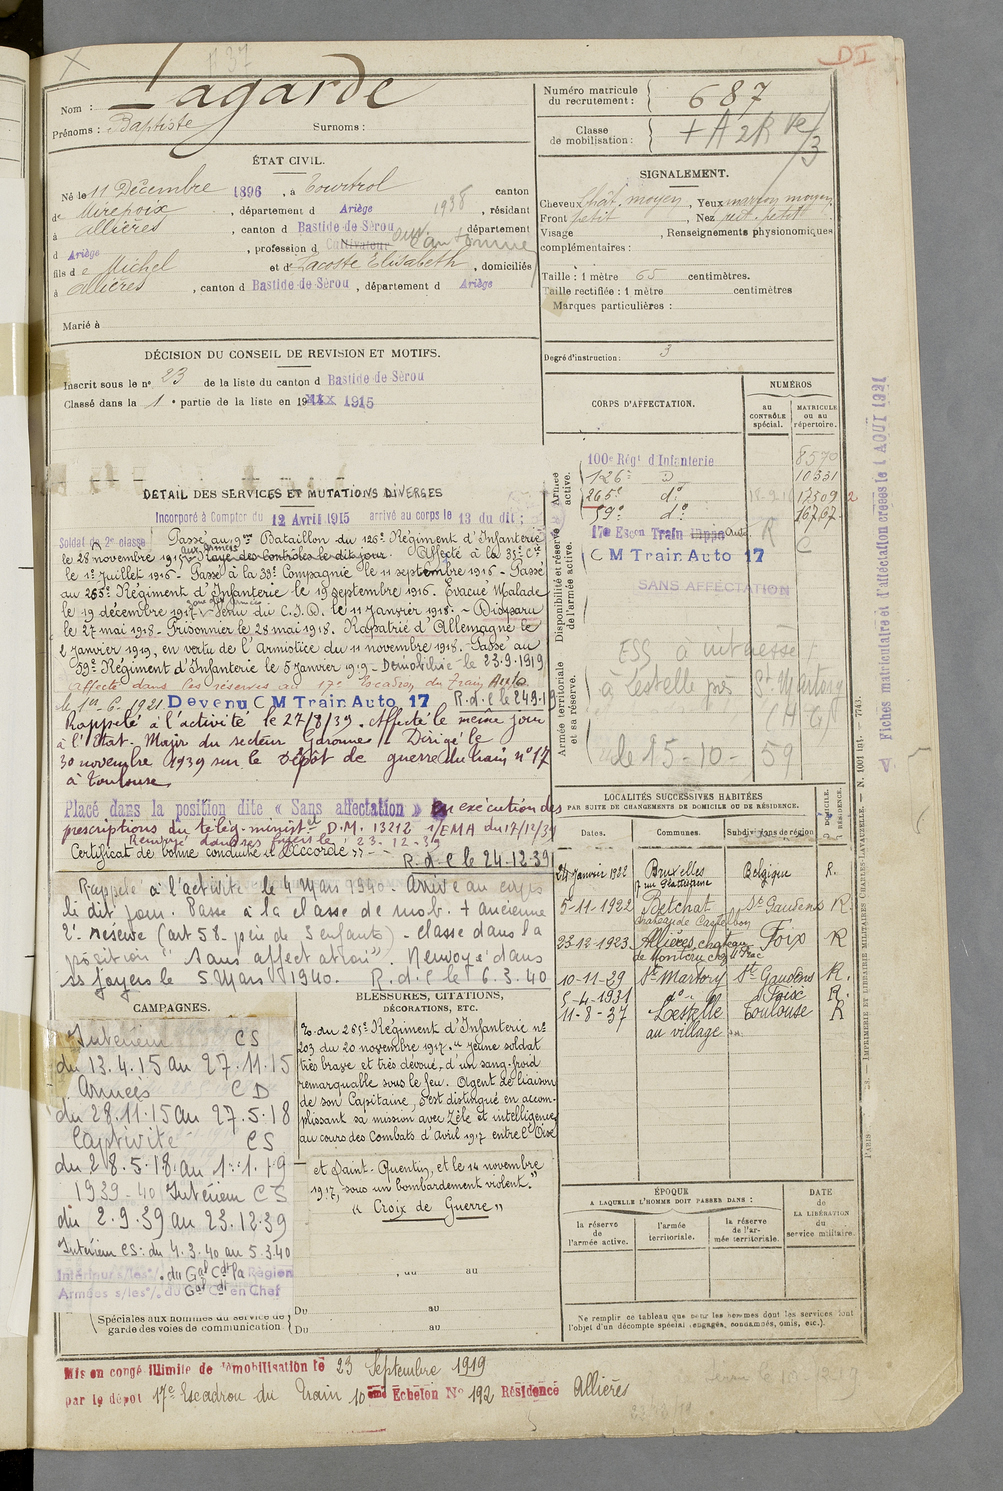 D I
Nom : Lagarde
Prénoms : Baptiste Surnoms :
Numéro matricule du recrutement : 687
Classe de mobilisation : + A 2R
ÉTAT CIVIL.
Né le 11 Décembre 1896, à Tourtrol canton
de Mirepoix, département d Ariège 1938, résidant
à Allières, canton d Bastide-de-Sérou département
d Ariège, profession d Cultivateur cantonnier
fils de Michel et d Lacoste Elisabeth, domiciliés
à Allières, canton d Bastide-de-Sérou, département d Ariège
Marié à
SIGNALEMENT.
Cheveux chât. moyen, Yeux marron moyen
Front petit, Nez
Visage , Renseignements physionomiques
complémentaires :
Taille : 1 mètre 65 centimètres.
Taille rectifiée : 1 mètre centimètres
Marques particulières :
Degré d'instruction : 3
DÉCISION DU CONSEIL DE REVISION ET MOTIFS.
Inscrit sous le n° 23 de la liste du canton d Bastide-de-Sérou
Classé dans la 1e partie de la liste en 19 1915
CORPS D'AFFECTATION.
NUMÉROS
au CONTRÔLE spécial.
MATRICULE ou au répertoire.
Armée active.
100e Régt d'Infanterie 8570
126e D° 10331
265e d° 17509 2
59e d° 16767
Disponibilité et réserve de l'armée active.
17e Escon Train Auto R
C M Train Auto 17 C
SANS AFFECTATION
Armée territoriale et sa réserve.
ESS à intéressé
à Lestelle près St Martory
(H G)
le 15-10-59
Fiches matriculaire et d'affectation créées le 1 AOUT 1931
DÉTAIL DES SERVICES ET MUTATIONS DIVERSES
Incorporé à Compter du 12 Avril 1915 arrivé au corps le 13 du dit :
Soldat de 2e classe Passé au 9me Bataillon du 126e Régiment d'Infanterie
aux armées
le 28 novembre 1915 Rayé des contrôles le dit jour. Affecté à la 35e Cie
le 1er Juillet 1916 - Passé à la 33e Compagnie le 11 septembre 1916 - Passé
au 265e Régiment d'Infanterie le 19 septembre 1916. Evacué Malade
zone des armées
le 19 décembre 1917 Venu du C.I.D. le 11 Janvier 1918. - Disparu
le 27 mai 1918 - Prisonnier le 28 mai 1918. Rapatrié d'Allemagne le
2 Janvier 1919, en vertu de l'Armistice du 11 novembre 1918. Passé au
59e Régiment d'Infanterie le 5 janvier 1919 - Démobilisé le 23.9.1919
Affecté dans les réserves au 17e Escadron du Train Auto
le 1er.6.1921 Devenu C M Train Auto 17 R.d.C le 24.9.19
Rappelé à l'activité le 27/8/39. Affecté le même jour
à l'Etat-Major du secteur Garonne. Dirigé le
30 novembre 1939 sur le dépôt de guerre du train n° 17
à Toulouse
Placé dans la position dite « Sans affectation » en exécution des
prescriptions du télég. ministel D.M. 13212 1/EMA du 17/12/39
Renvoyé dans ses foyers le 23-12-39
Certificat de bonne conduite « Accordé » R.d.C le 24-12-39
Rappelé à l'activité le 4 Mars 1940. Arrivé au corps
le dit jour. Passe à la classe de mob. + ancienne
2e réserve (art 58 père de 3 enfants) - classé dans la
position "sans affectation". Renvoyé dans
ses foyers le 5 Mars 1940. R.d.C le 6.3.40
CAMPAGNES.
Intérieur CS
du 13.4.15 au 27.11.15
Armées CD
du 28.11.15 au 27.5.18
Captivité CS
du 28.5.18 au 1.1.19
1939-40 Intérieur CS
du 2.9.39 au 23.12.39
Intérieur CS : du 4.3.40 au 5.3.40
Intérieur s/les o/. du Gal Cdt la Région
Armées s/les o/. du Gal Ct en Chef
Spéciales aux hommes du service des
garde des voies de communication
, du au
Du au
Du au
BLESSURES, CITATIONS, DÉCORATIONS, ETC.
O. du 265e Régiment d'Infanterie n°
203 du 20 novembre 1917. "Jeune soldat
très brave et très dévoué, d'un sang-froid
remarquable sous le feu. Agent de liaison
de son Capitaine, s'est distingué en accom-
plissant sa mission avec zèle et intelligence
au cours des Combats d'Avril 1917 entre l'Oise
et Saint-Quentin, et le 14 novembre
1917, sous un bombardement violent."
« Croix de Guerre »
LOCALITÉS SUCCESSIVES HABITÉES
PAR SUITE DE CHANGEMENTS DE DOMICILE OU DE RÉSIDENCE.
Dates. Communes. Subdivisions de région D. DOMICILE. R. RÉSIDENCE.
24 janvier 1922 Bruxelles Belgique R.
5-11-1922 Betchat St Gaudens R.
23-12-1923 Allières, chateau Foix R
10-11-29 St Martory St Gaudens R.
5-4-1931 d° Foix R.
11-8-37 Lestelle Toulouse R
au village
ÉPOQUE
A LAQUELLE L'HOMME DOIT PASSER DANS :
la réserve de l'armée active.
l'armée territoriale.
la réserve de l'armée territoriale.
DATE de LA LIBÉRATION du service militaire.
Ne remplir ce tableau que pour les hommes dont les services font
l'objet d'un décompte spécial (engagés, condamnés, omis, etc.).
PARIS — IMPRIMERIE ET LIBRAIRIE MILITAIRES CHARLES-LAVAUZELLE. — N. 1001 int. — 7743.
Mis en congé illimité de démobilisation le 23 Septembre 1919
par le dépot 17e Escadron du Train 10eme Echelon N° 192 Résidence Allières